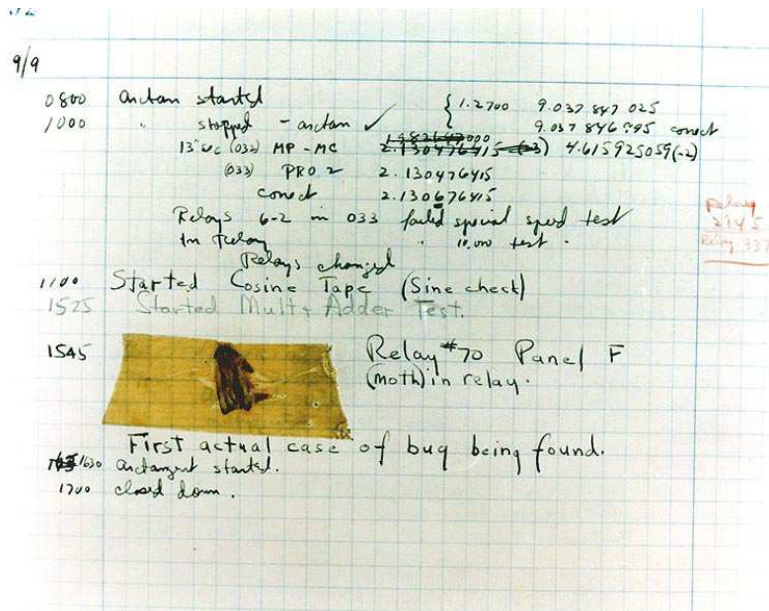 9/9
0800 arctan started { 1.2700 9.037 847 025
1000 " stopped - arctan ✓ 9.037 846 995 correct
13"uc (032) MP - MC 1.982647000 2.130476415 (-3) 4.615925059(-2)
(033) PRO 2 2.130476415
correct 2.130676415
Relays 6-2 in 033 failed special speed test
In Relay " 10,000 test.
Relays changed
Relay
2145
Relay 337
1100 Started Cosine Tape (Sine check)
1525 Started Mult+ Adder Test.
1545 Relay #70 Panel F
(moth) in relay.
First actual case of bug being found.
1630 arctangent started.
1700 closed down.